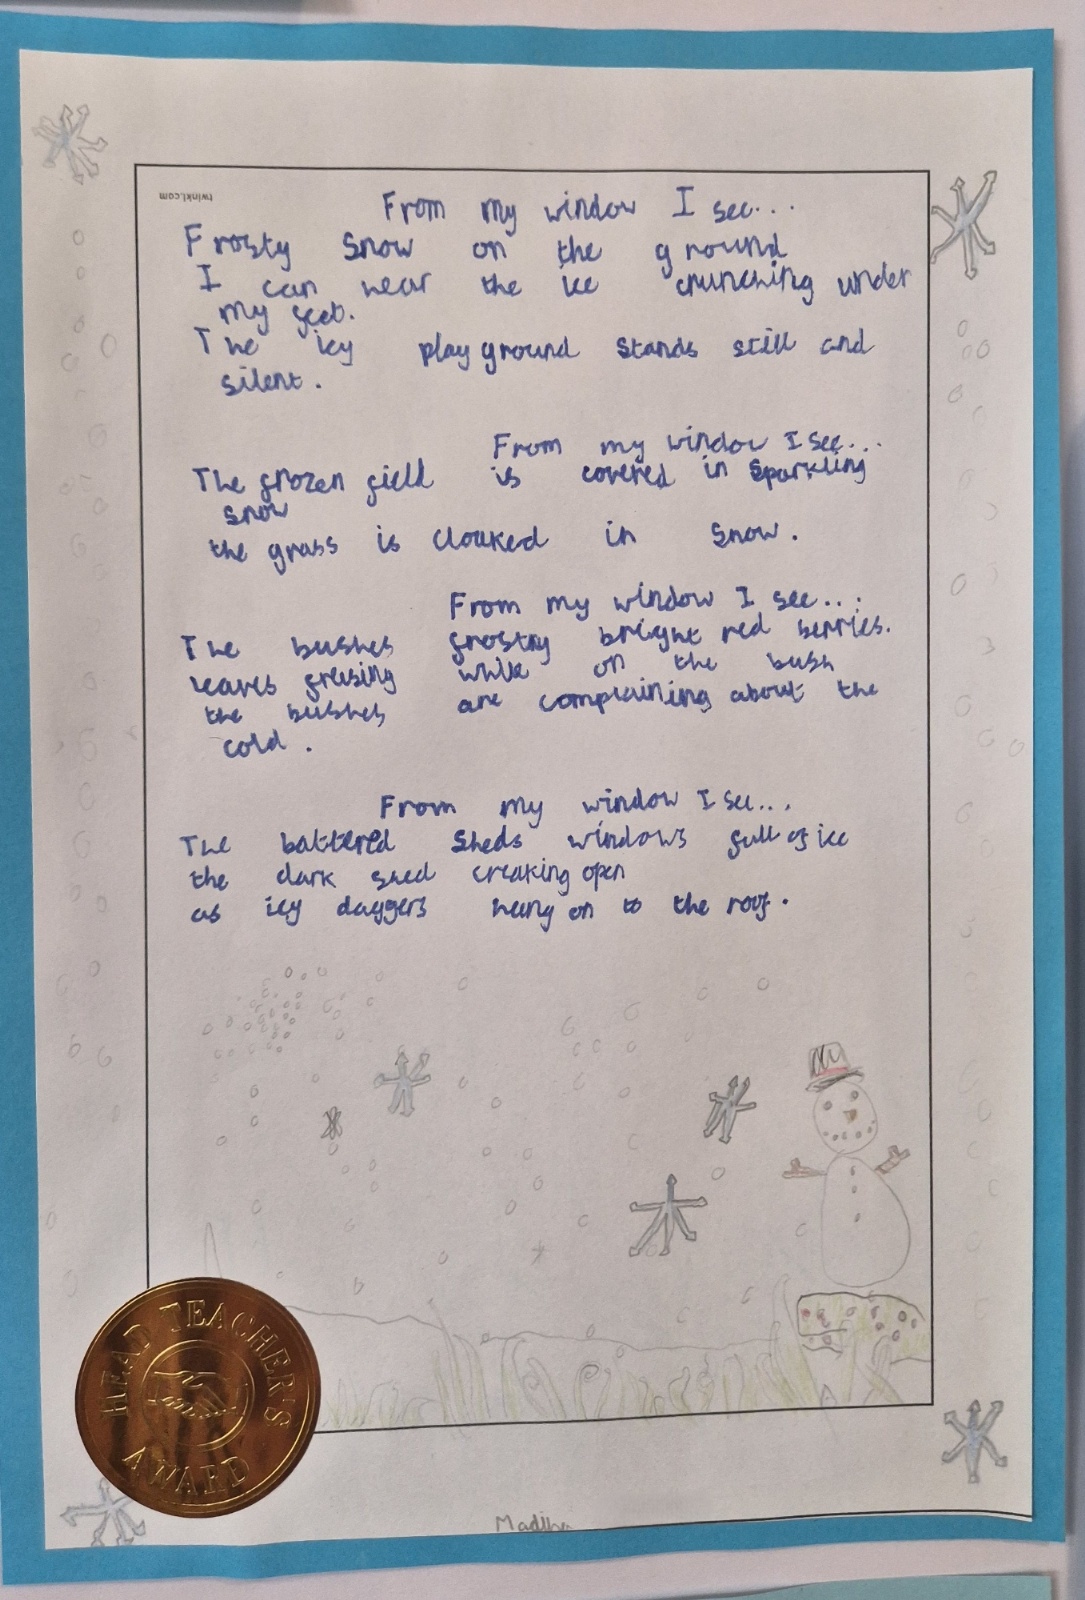 twinkl.com
From my window I see...
Frosty snow on the ground
I can hear the ice crunching under
my feet.
The icy playground stands still and
silent.
From my window I see...
The frozen field is covered in sparkling
snow
the grass is cloaked in snow.
From my window I see...
The bushes frostry bright red berries.
leaves freising while on the bush
the bushes are complaining about the
cold.
From my window I see...
The battered sheds windows full of ice
the dark shed creaking open
as icy daggers hang on to the roof.
HEAD TEACHER'S
AWARD
Madiha